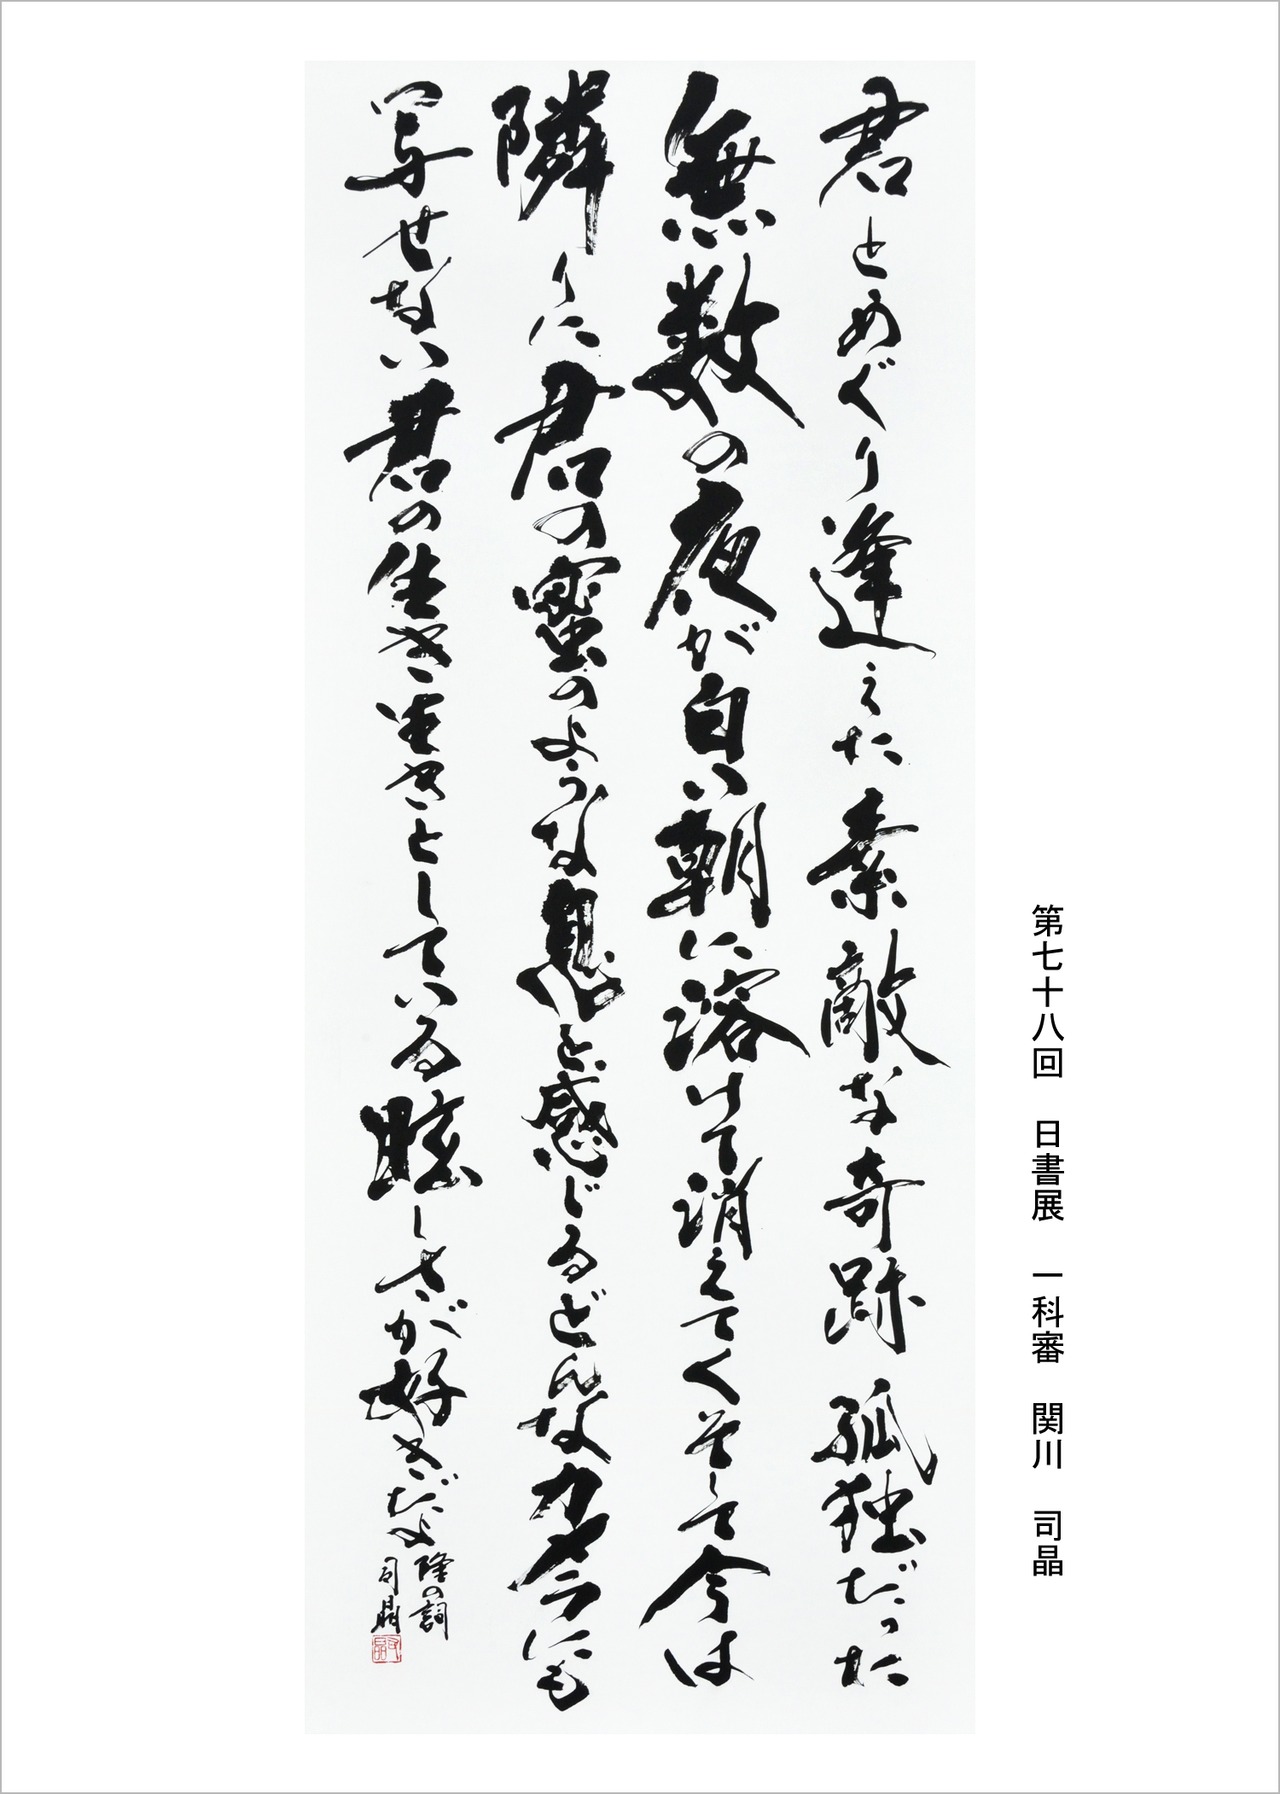 第七十八回　日書展　一科審　関川　司晶
君とめぐり逢えた素敵な奇跡孤独だった
無数の夜が白い朝に溶けて消えてくそして今は
隣りに君の蜜のような息を感じるどんなカメラにも
写せない君の生き生きとしている眩しさが好きだよ
隆の詞
司晶
司晶